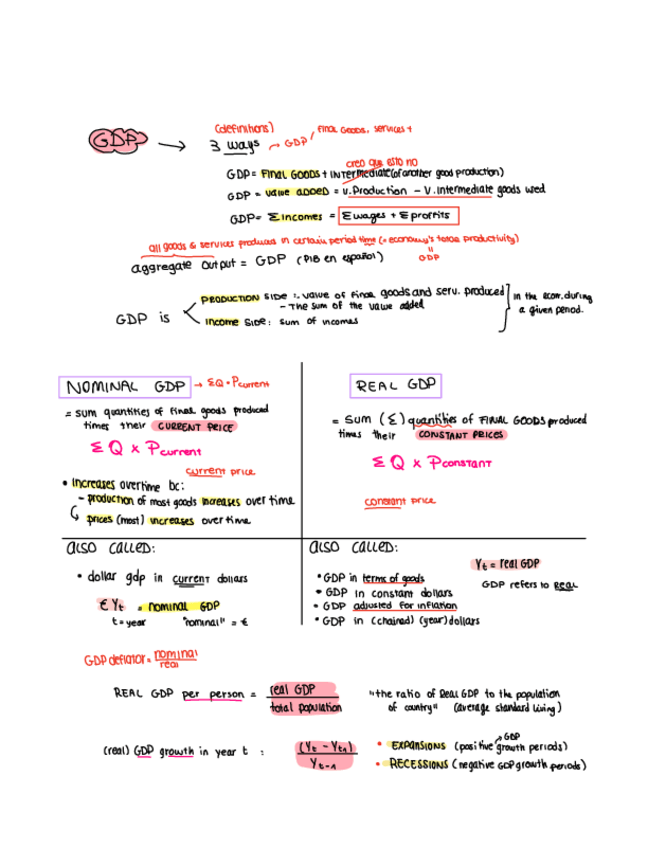 (definitions)
final goods, services +
GDP → 3 ways → GDP
creo que esto no
GDP = FINAL GOODS + INTermediate (of another good production)
GDP = value ADDED = v.Production - v.Intermediate goods used
GDP = Σ incomes = Σ wages + Σ profits
all goods & services produces in certain period time (= economy's total productivity)
aggregate output = GDP (PIB en español) " GDP
GDP is
PRODUCTION SIDE : value of final goods and serv. produced
- The sum of the value added
income SIDE: sum of incomes
in the econ. during
a given period.
NOMINAL GDP → ΣQ · Pcurrent
= sum quantities of final goods produced
times their CURRENT PRICE
Σ Q x Pcurrent
current price
• Increases overtime bc:
- production of most goods increases over time
prices (most) increases over time
REAL GDP
= sum (Σ) quantities of FINAL GOODS produced
times their CONSTANT PRICES
Σ Q x PCONSTANT
constant price
also called:
• dollar gdp in current dollars
€ Yt = nominal GDP
t = year "nominal" = €
also called:
Yt = real GDP
GDP refers to REAL
• GDP in terms of goods
• GDP in constant dollars
• GDP adjusted for inflation
• GDP in (chained) (year) dollars
GDP deflator = nominal
real
REAL GDP per person = real GDP
total population
"the ratio of Real GDP to the population
of country" (average standard living)
(real) GDP growth in year t : (Yt - Yt-1)
Yt-1
GDP
• EXPANSIONS (positive growth periods)
• RECESSIONS (negative GDP growth periods)